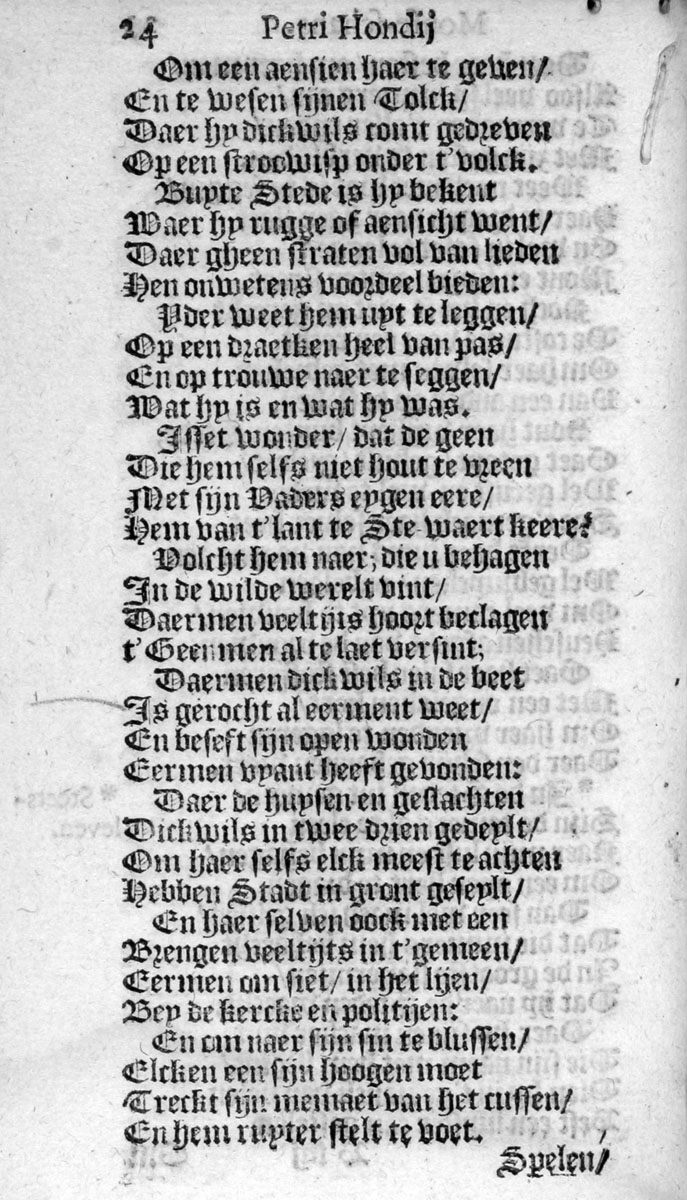 24 Petri Hondij
Om een aensien haer te geven/
En te wesen sijnen Tolck/
Daer hy dickwils comt gedreven
Op een stroowisp onder t'volck.
Buyte Stede is hy bekent
Waer hy rugge of aensicht went/
Daer gheen straten vol van lieden
Hen onwetens voordeel bieden:
Yder weet hem uyt te leggen/
Op een draetken heel van pas/
En op trouwe naer te seggen/
Wat hy is en wat hy was.
Isset wonder/ dat de geen
Die hem selfs niet hout te vreen
Met sijn Vaders eygen eere/
Hem van t'lant te Ste-waert keere?
Volcht hem naer, die u behagen
In de wilde werelt vint/
Daermen veeltijts hoort beclagen
t'Geen men al te laet versint;
Daermen dickwils in de beet
Is gerocht al eerment weet/
En beseft sijn open wonden
Eermen vyant heeft gevonden:
Daer de huysen en geslachten
Dickwils in twee drien gedeylt/
Om haer selfs elck meest te achten
Hebben Stadt in gront geseylt/
En haer selven oock met een
Brengen veeltijts in t'gemeen/
Eermen om siet/ in het lijen/
Bey de kercke en politijen:
En om naer sijn sin te blussen/
Elcken een sijn hoogen moet
Treckt sijn memaet van het cussen/
En hem ruyter stelt te voet.
Spelen/